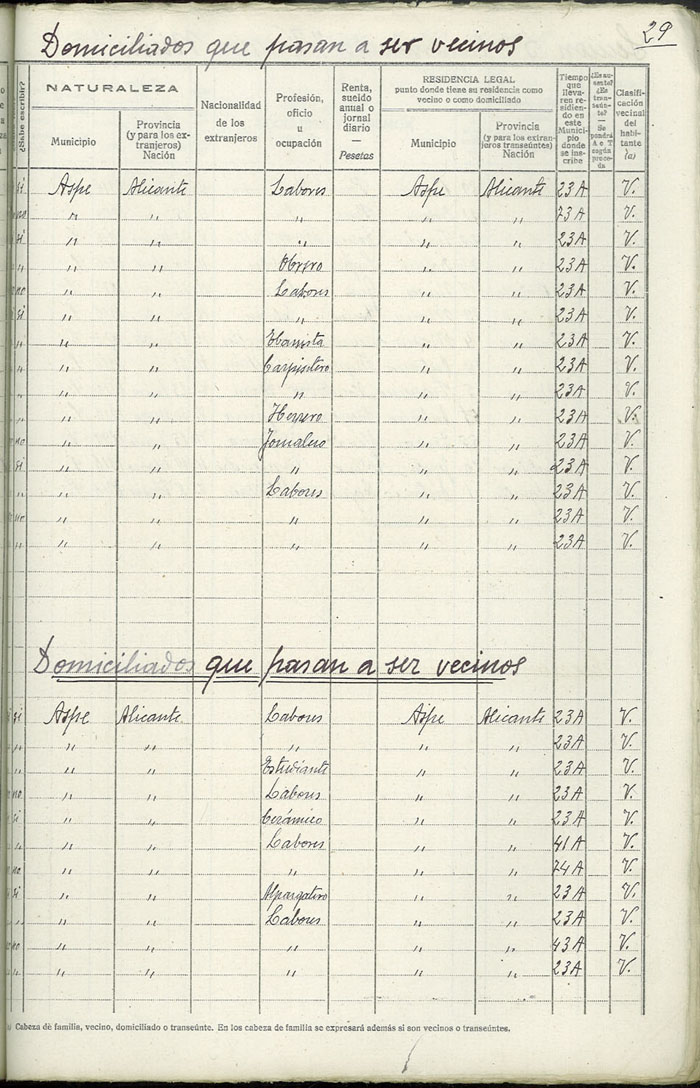 29
Domiciliados que pasan a ser vecinos
¿Sabe escribir?
NATURALEZA
Municipio
Provincia (y para los extranjeros) Nación
Nacionalidad de los extranjeros
Profesión, oficio u ocupación
Renta, sueldo anual o jornal diario — Pesetas
RESIDENCIA LEGAL
punto donde tiene su residencia como vecino o como domiciliado
Municipio
Provincia (y para los extranjeros transeúntes) Nación
Tiempo que lleva- ren residiendo en este Municipio donde se inscribe
¿Es ausente? ¿Es transeúnte? — Se pondrá A e T según proceda
Clasificación vecinal del habitante (a)
si Aspe Alicante Labores Aspe Alicante 23 A V.
" " " " " 73 A V.
si " " " " " 23 A V.
" " " Obrero " " 23 A V.
no " " Labores " " 23 A V.
si " " " " " 23 A V.
" " " Ebanista " " 23 A V.
" " " Carpintero " " 23 A V.
" " " " " " 23 A V.
" " " Herrero " " 23 A V.
no " " Jornalero " " 23 A V.
si " " " " " 23 A V.
" " " Labores " " 23 A V.
no " " " " " 23 A V.
" " " " " " 23 A V.
Domiciliados que pasan a ser vecinos
si Aspe Alicante Labores Aspe Alicante 23 A V.
" " " " " " 23 A V.
" " " Estudiante " " 23 A V.
no " " Labores " " 23 A V.
si " " Cerámico " " 23 A V.
" " " Labores " " 41 A V.
no " " " " " 74 A V.
si " " Alpargatero " " 23 A V.
" " " Labores " " 23 A V.
no " " " " " 43 A V.
" " " " " " 23 A V.
a) Cabeza de familia, vecino, domiciliado o transeúnte. En los cabeza de familia se expresará además si son vecinos o transeúntes.